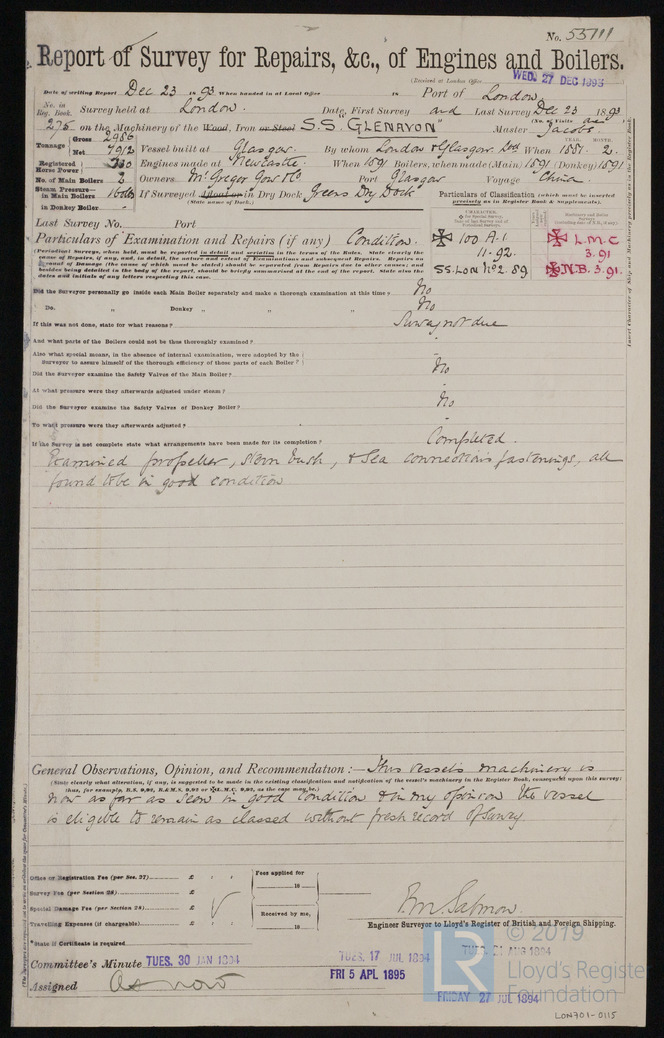 No. 55111
Report of Survey for Repairs, &c., of Engines and Boilers.
(Received at London Office WED. 27 DEC 1893
Date of writing Report Dec 23 18 93 When handed in at Local Office 18 Port of London
No. in Reg. Book. Survey held at London. Date, First Survey and Last Survey Dec 23 1893
(No. of Visits
275 on the Machinery of the Wood, Iron or Steel S.S. "GLENAVON" Master Jacobs
Tonnage Gross 2986
Net 1912 Vessel built at Glasgow. By whom London & Glasgow When 1881 2.
YEAR. MONTH.
Registered Horse Power 330 Engines made at Newcastle When 1891 Boilers, when made (Main) 1891 (Donkey) 1891
No. of Main Boilers 2 Owners McGregor Gow & Co Port Glasgow Voyage China
Steam Pressure— in Main Boilers 160 lbs If Surveyed Afloat or in Dry Dock Greens Dry Dock
(State name of Dock.)
in Donkey Boiler
Particulars of Classification (which must be inserted precisely as in Register Book & Supplements).
Last Survey No. Port
Particulars of Examination and Repairs (if any) Condition.
100 A.1.
11-92.
SS. LON No2. 89.
L.M.C
3.91
N.B. 3.91.
(Periodical Surveys, when held, must be reported in detail and seriatim in the terms of the Rules. State clearly the
cause of Repairs, if any, and, in detail, the nature and extent of Examinations and subsequent Repairs. Repairs on
account of Damage (the cause of which must be stated) should be separated from Repairs due to other causes; and
besides being detailed in the body of the report, should be briefly summarised at the end of the report. State also the
dates and initials of any letters respecting this case.)
Did the Surveyor personally go inside each Main Boiler separately and make a thorough examination at this time? No
Do. „ Donkey „ „ „ No
If this was not done, state for what reasons? Survey not due
And what parts of the Boilers could not be thus thoroughly examined? -
Also what special means, in the absence of internal examination, were adopted by the
Surveyor to assure himself of the thorough efficiency of those parts of each Boiler? -
Did the Surveyor examine the Safety Valves of the Main Boiler? No
At what pressure were they afterwards adjusted under steam? -
Did the Surveyor examine the Safety Valves of Donkey Boiler? No
To what pressure were they afterwards adjusted? -
If the Survey is not complete state what arrangements have been made for its completion? Completed.
Examined propeller, stern bush, & sea connections fastenings, all
found to be in good condition
General Observations, Opinion, and Recommendation:— This vessel's machinery is
(State clearly what alteration, if any, is suggested to be made in the existing classification and notification of the vessel's machinery in the Register Book, consequent upon this survey;
thus, for example, B.S. 9,92, B.&M.S. 9,92 or L.M.C. 9,92, as the case may be.)
now as far as seen in good condition & in my opinion the vessel
is eligible to remain as classed without fresh record of Survey.
Office or Registration Fee (per Sec. 27) £
Survey Fee (per Section 28) £
Special Damage Fee (per Section 28) £
Travelling Expenses (if chargeable) £
Fees applied for
18
Received by me,
18
P.M. Salmon.
Engineer Surveyor to Lloyd's Register of British and Foreign Shipping.
*State if Certificate is required
Committee's Minute TUES. 30 JAN 1894
TUES. 17 JUL 1894
TUES. 21 AUG 1894
FRI 5 APL 1895
Assigned As now
FRIDAY 27 JUL 1894
LR
© 2019
Lloyd's Register
Foundation
LON701-0115